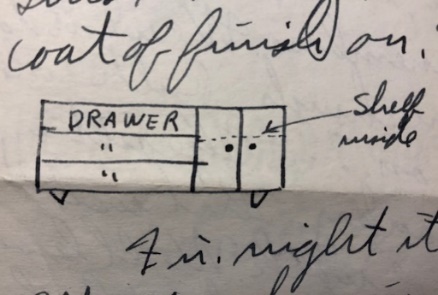 coat of finish on.
DRAWER
"
"
Shelf
inside
night it